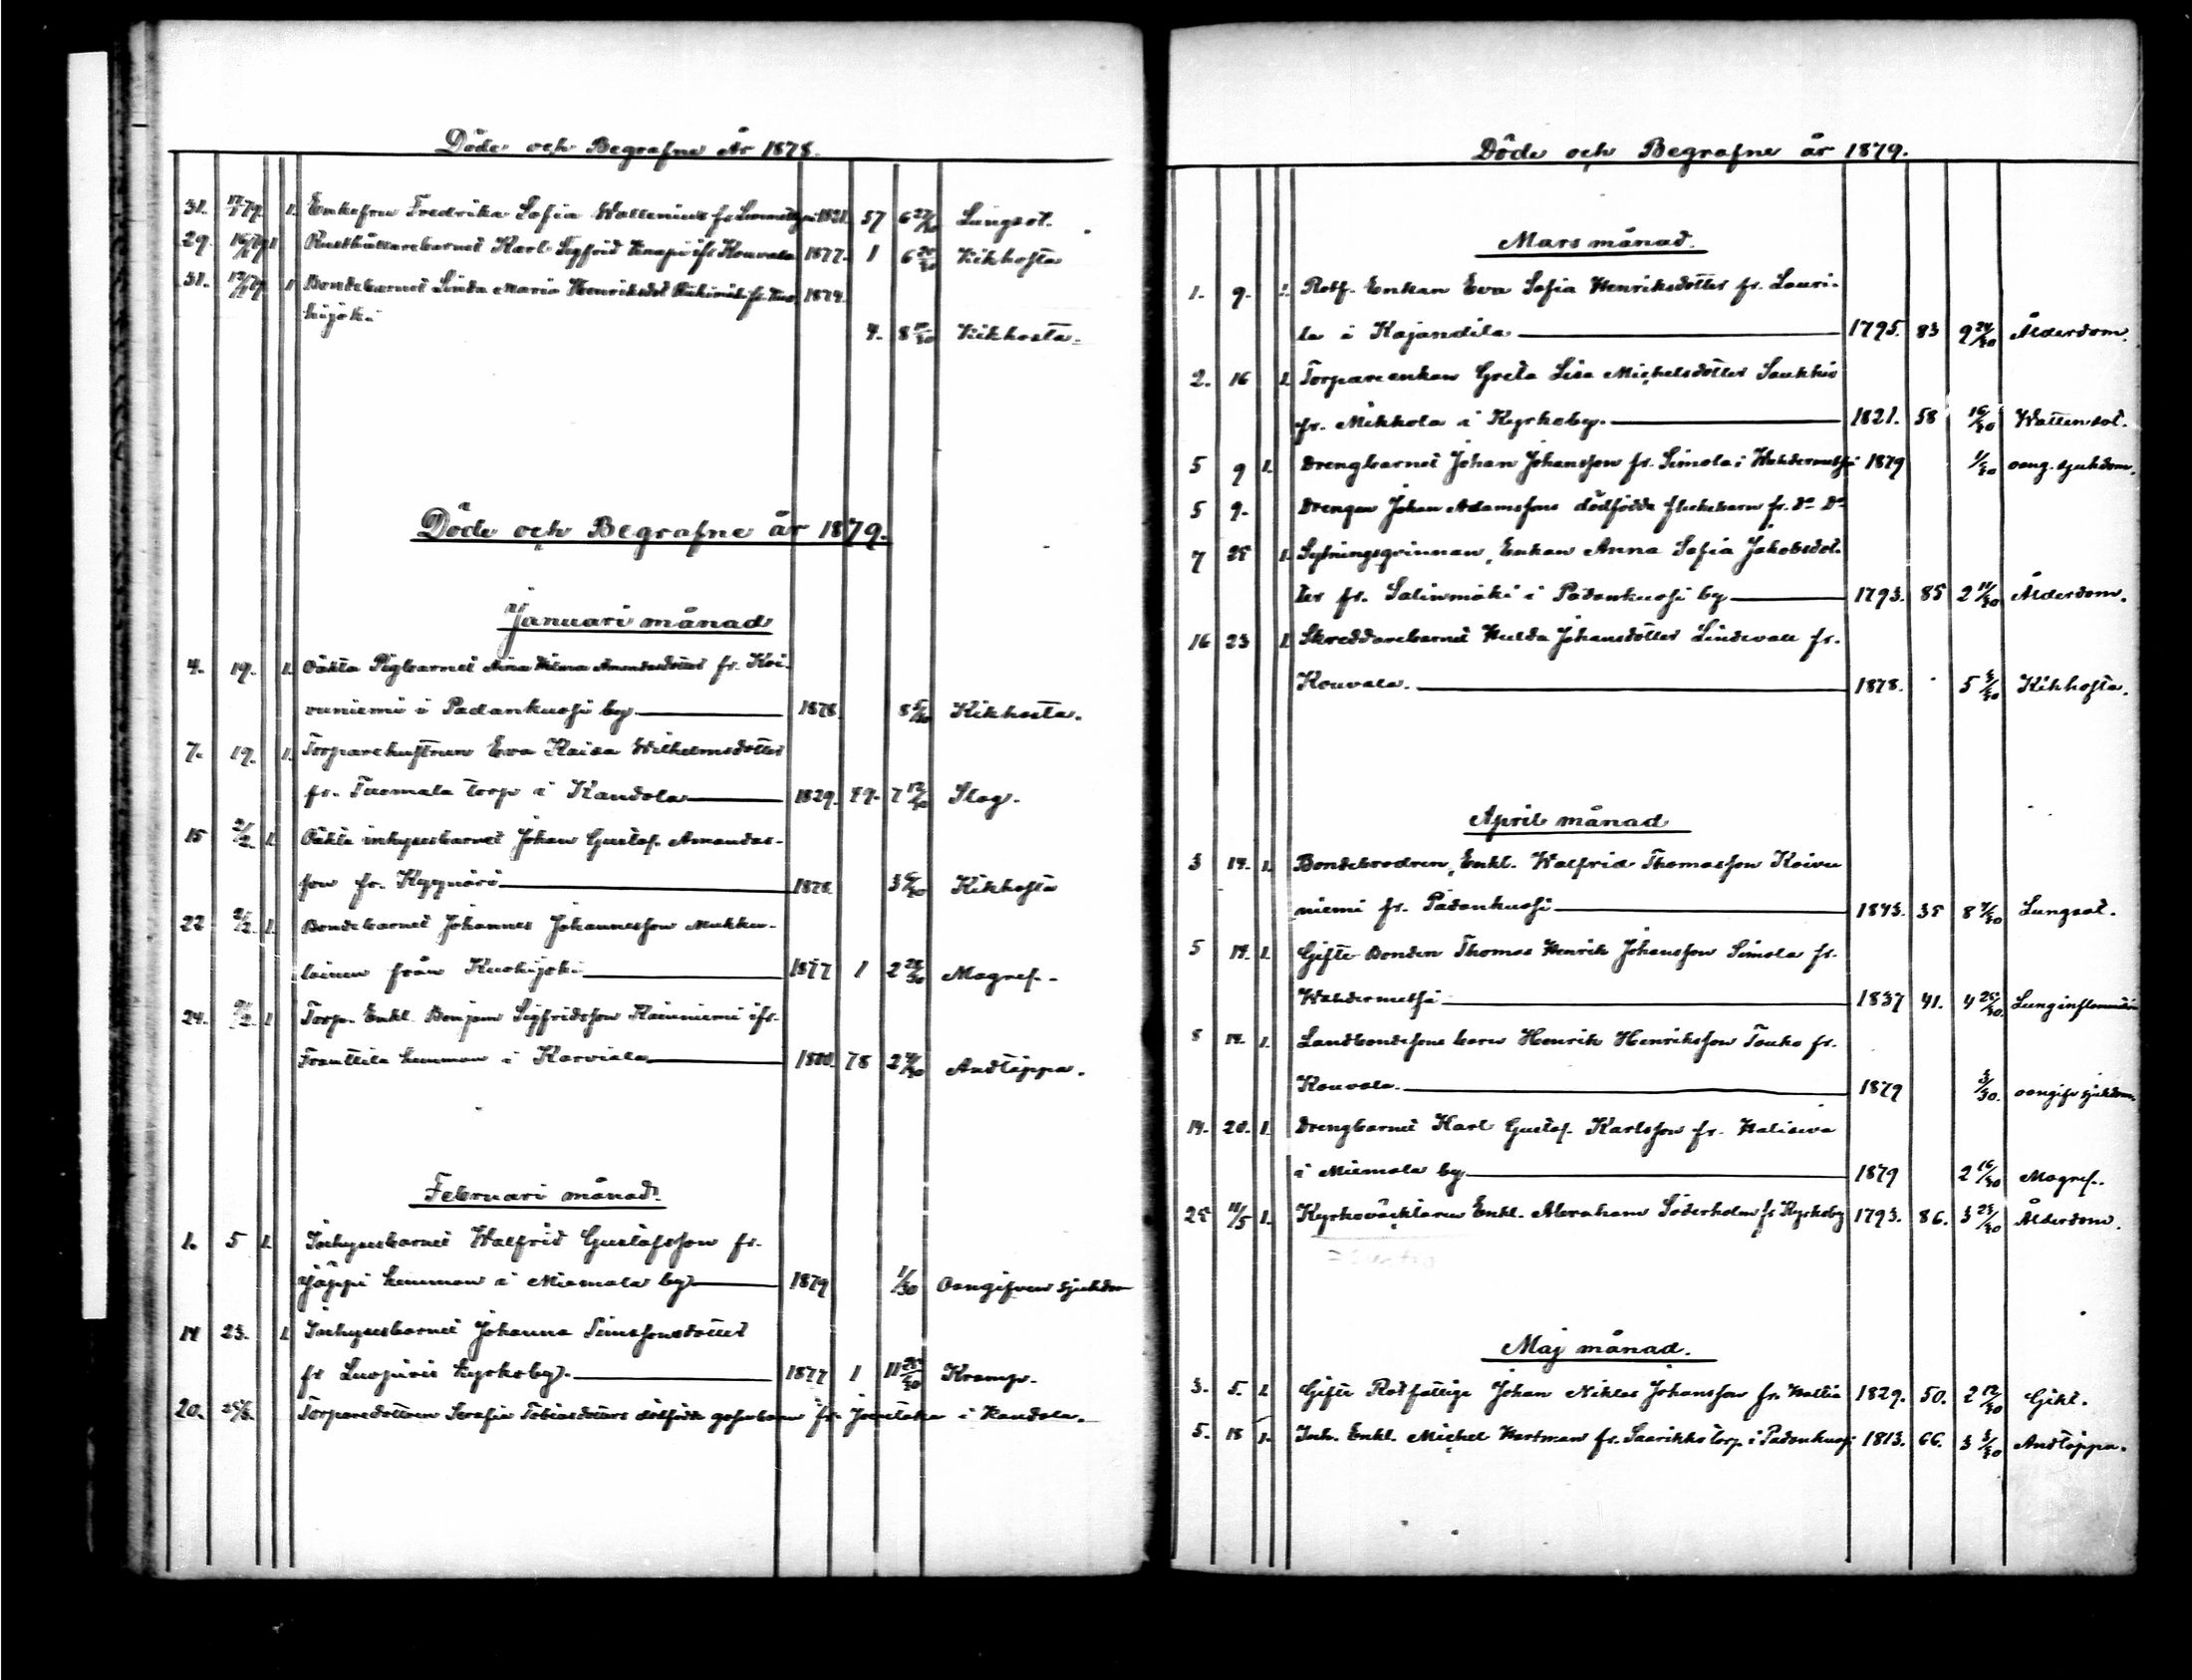 Döde och Begrafne År 1878.
31. 17/1 79. 1. Enkefru Fredrika Sofia Wallenius fr 1821. 57 6 27/30 Lungsot.
29. 1 Rusthållarebarnet Karl Sigfrid Knaapi fr Kouvala 1877. 1 6 Kikhosta
31. 1 Bondebarnet Linda Maria Henriksdot. fr. Kuo- 1874.
kijoki
4. 8 Kikhosta.
Döde och Begrafne år 1879.
Januari månad
4. 19. 1. Oäkta Pigbarnet Aina Wilma Amandasdotter fr. Koi-
vuniemi i Padankoski by 1878. 8 5/30 Kikhosta.
7. 19. 1. Torparehustrun Eva Kaisa Wilhelmsdotter
fr. Tuomala torp i Kandola 1829. 49. 7 12/30 Slag.
15 2/2 1. Oäkta inhysesbarnet Johan Gustaf Amandas-
son fr. Kyynärö 1878. 3 Kikhosta
22 2/2. 1. Bondebarnet Johannes Johannesson Mukku-
lainen från Kuokijoki 1877 1 2 28/30 Magref.
24. 1 Torp. Enkl. Benjam Sigfridsson Kainiemi fr.
Franttila hemman i Karviala 1800. 78 2 Andtäppa.
Februari månad.
1. 5 1. Inhysesbarnet Walfrid Gustafsson fr.
Jäppi hemman i Miemala by 1879 1/30 Oangifven sjukdom
14 23. 1. Inhysesbarnet Johanna Simssonsdotter
fr kyrkoby. 1877 1 11 Kramp.
20. Torparedottren Serafia Tobiasdotters dödfödda gossebarn fr. i Kandola.
Döde och Begrafne år 1879.
Mars månad.
1. 9. 1. Rotf. Enkan Eva Sofia Henriksdotter fr. Lauri-
la i Kajandila 1795. 83 9 24/30 Ålderdom.
2. 16 1. Torpareenkan Greta Lisa Michelsdotter Saukkio
fr. Mikkola i Kyrkoby. 1821. 58 16/30 Wattensot.
5 9 1. Drengbarnet Johan Johansson fr. Simola i Wahdermetsä 1879 1/30 oang. sjukdom.
5 9. Drengen Johan Adamssons dödfödda flickebarn fr. do do
7 25 1. Sytningsqvinnan, Enkan Anna Sofia Jakobsdot-
ter fr. Salinmäki i Padankoski by 1793. 85 2 11/30 Ålderdom.
16 23 1. Skreddarebarnet Hulda Johansdotter Lindevall fr.
Kouvala. 1878. 5 3/30 Kikhosta.
April månad
3 14. 1. Bondebrodren, Enkl. Walfrid Thomasson Koivu
niemi fr. Padankoski 1843. 35 8 7/30 Lungsot.
5 14. 1. Gifte Bonden Thomas Henrik Johansson Simola fr.
Wahdermetsä 1837 41. 4 25/30. Lunginflammation
8 14. 1. Landbondesons barn Henrik Henriksson Touko fr.
Kouvola. 1879 3/30. oangifv sjukdom.
14. 20. 1. Drengbarnet Karl Gustaf Karlsson fr.
i Miemala by 1879 2 16/30 Magref.
25 11/5 1. Kyrkoväcktaren Enkl. Abraham Söderholm fr Kyrkoby 1793. 86. 3 23/30 Ålderdom.
Maj månad.
3. 5. 1. Gifte Rotfattige Johan Niklas Johansson fr. 1829. 50. 2 12/30 Gikt.
5. 18 1. Inh. Enkl. Michel Hartman fr. Saarikko torp i Padankoski 1813. 66. 3 3/30 Andtäppa.